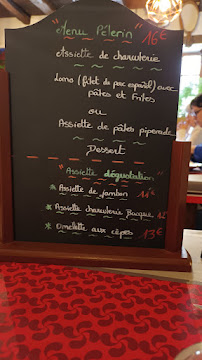 "Menu Pèlerin" 16€
Assiette de charcuterie
Lomo (filet de porc español) avec
pâtes et frites
ou
Assiette de pâtes piperade
Dessert
"Assiette dégustation"
* Assiette de jambon 14€
* Assiette charcuterie Basque 12
* Omelette aux cèpes 13€